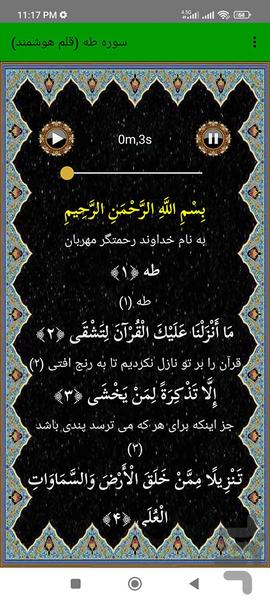 11:17 PM
64
سوره طه (قلم هوشمند)
0m,3s
بِسْمِ اللَّهِ الرَّحْمَنِ الرَّحِيمِ
به نام خداوند رحمتگر مهربان
طه ﴿١﴾
طه (۱)
مَا أَنْزَلْنَا عَلَيْكَ الْقُرْآنَ لِتَشْقَى ﴿٢﴾
قرآن را بر تو نازل نکردیم تا به رنج افتی (۲)
إِلَّا تَذْكِرَةً لِمَنْ يَخْشَى ﴿٣﴾
جز اینکه برای هر که می ترسد پندی باشد
(۳)
تَنْزِيلًا مِمَّنْ خَلَقَ الْأَرْضَ وَالسَّمَاوَاتِ
الْعُلَى ﴿۴﴾